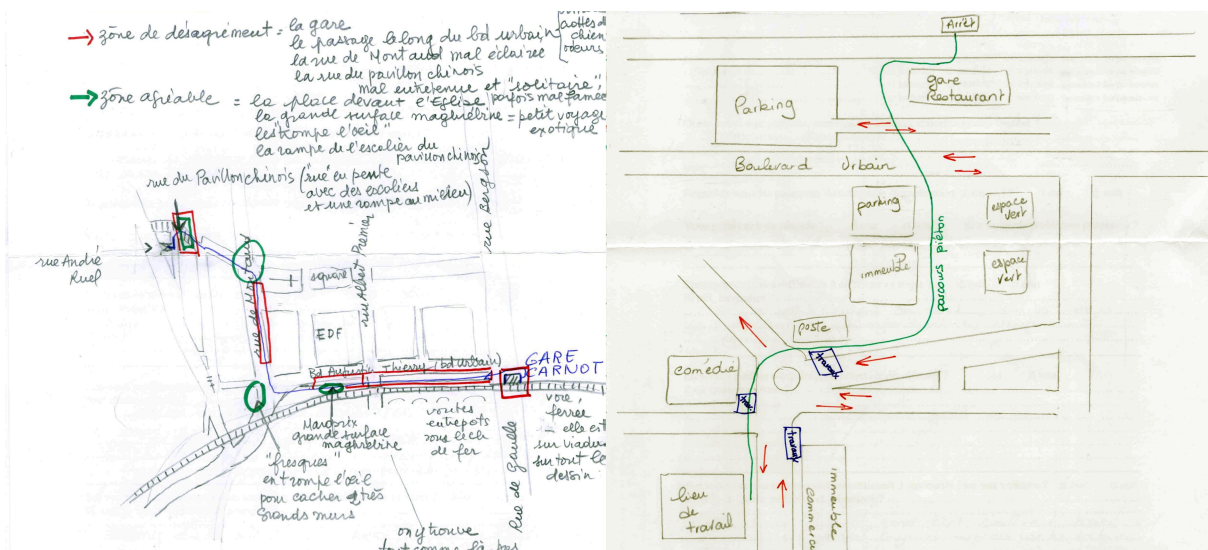 zône de désagrément = la gare
le passage le long du bd urbain
la rue de Montaud mal éclairée
la rue du pavillon chinois
mal entretenue et "solitaire",
chien
odeurs
parfois mal famée
zône agréable = la place devant l'Eglise
la grande surface maghrébine = petit voyage
exotique
les "trompe l'oeil"
la rampe de l'escalier du
pavillon chinois
rue du Pavillon chinois ("rue" en pente
avec des escaliers
et une rampe au milieu)
rue Bergson
rue André
Ruel
rue de Montaud
square
rue Albert Premier
EDF
Bd Augustin Thierry (bd urbain)
GARE
CARNOT
Manprix
grande surface
maghrébine
voutes
entrepots
sous le ch
de fer
voie
ferrée
elle est
sur viaduc
sur tout le
dessin
"fresques"
en trompe l'oeil
pour cacher 2 très
grands murs
Rue de Gaulle
on y trouve
tout comme là-bas
Arrêt
gare
Restaurant
Parking
Boulevard Urbain
parking
espace
vert
immeuble
espace
vert
parcours piéton
poste
travaux
comédie
trav.
travaux
lieu
de
travail
immeuble
commercia